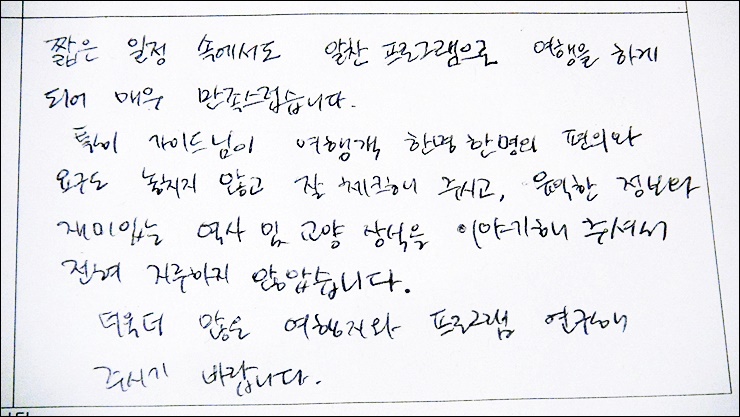 짧은 일정 속에서도 알찬 프로그램으로 여행을 하게
되어 매우 만족스럽습니다.
특히 가이드님이 여행객 한명 한명의 편의와
요구도 놓치지 않고 잘 체크해 주시고, 유익한 정보나
재미있는 역사 및 교양 상식을 이야기해 주셔서
전혀 지루하지 않았습니다.
더욱더 많은 여행지와 프로그램 연구해
주시기 바랍니다.